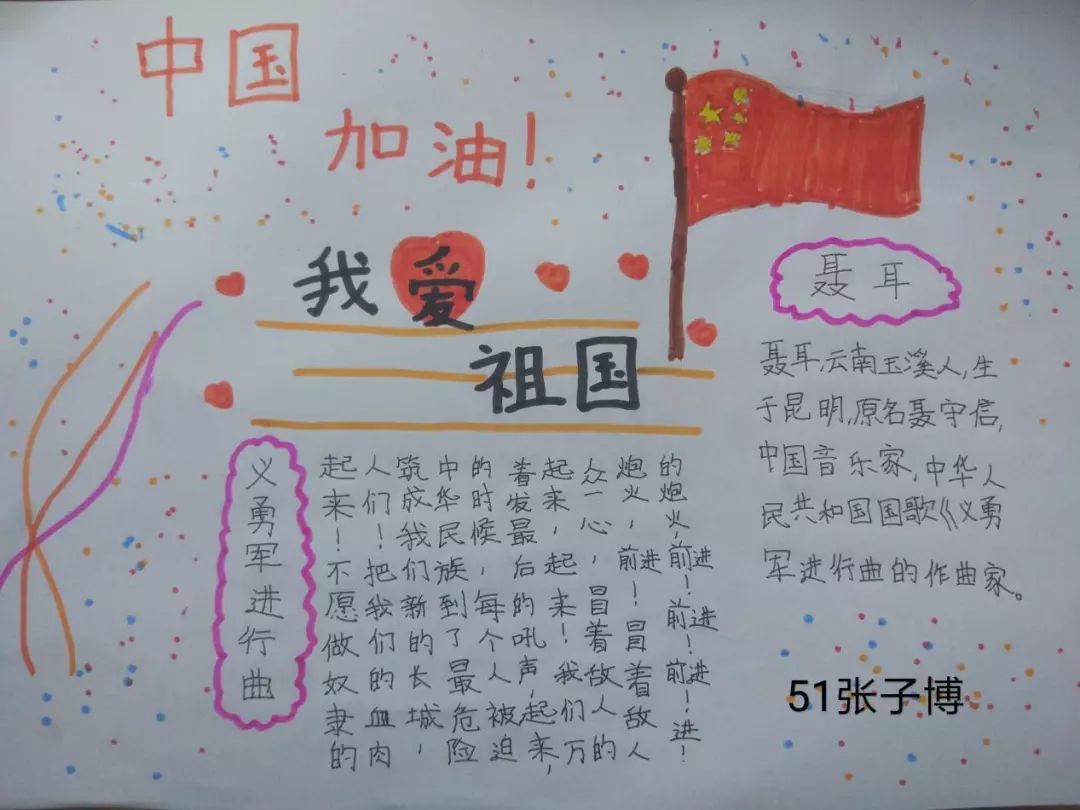 中国
加油！
我爱
祖国
义勇军进行曲
起来！不愿做奴隶的
人们！把我们的血肉
筑成我们新的长城，
中华民族到了最危险
的时候，每个人被迫
着发最后的吼声，起来，
起来，起来！我们万
众一心，冒着敌人的
炮火，前进！冒着敌人
的炮火，前进！前进！前进！进！
聂耳
聂耳,云南玉溪人,生
于昆明,原名聂守信,
中国音乐家,中华人
民共和国国歌《义勇
军进行曲的作曲家。
51张子博